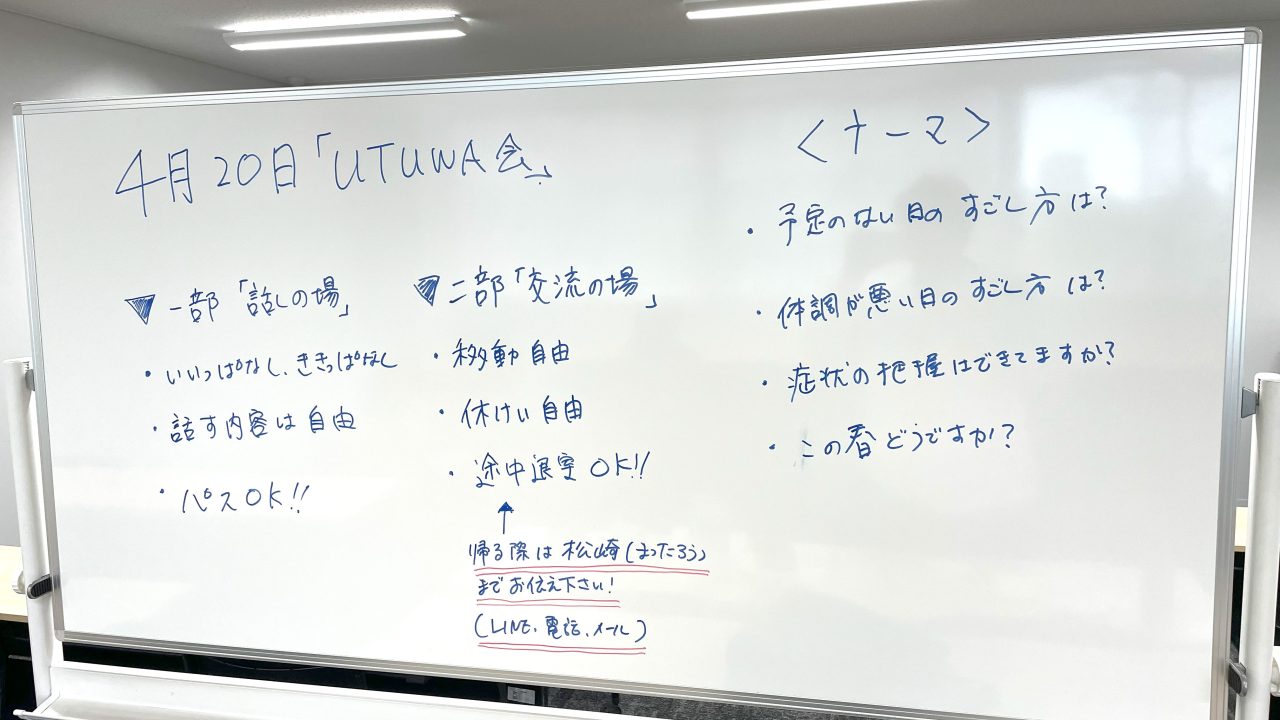 4月20日「UTUWA会」
▼一部「話しの場」
・いいっぱなし、ききっぱなし
・話す内容は自由
・パスOK!!
▼二部「交流の場」
・移動自由
・休けい自由
・途中退室OK!!
↑
帰る際は松崎(まったろう)
までお伝え下さい!
(LINE、電話、メール)
<テーマ>
・予定のない日のすごし方は?
・体調が悪い日のすごし方は?
・症状の把握はできてますか?
・この春どうですか?